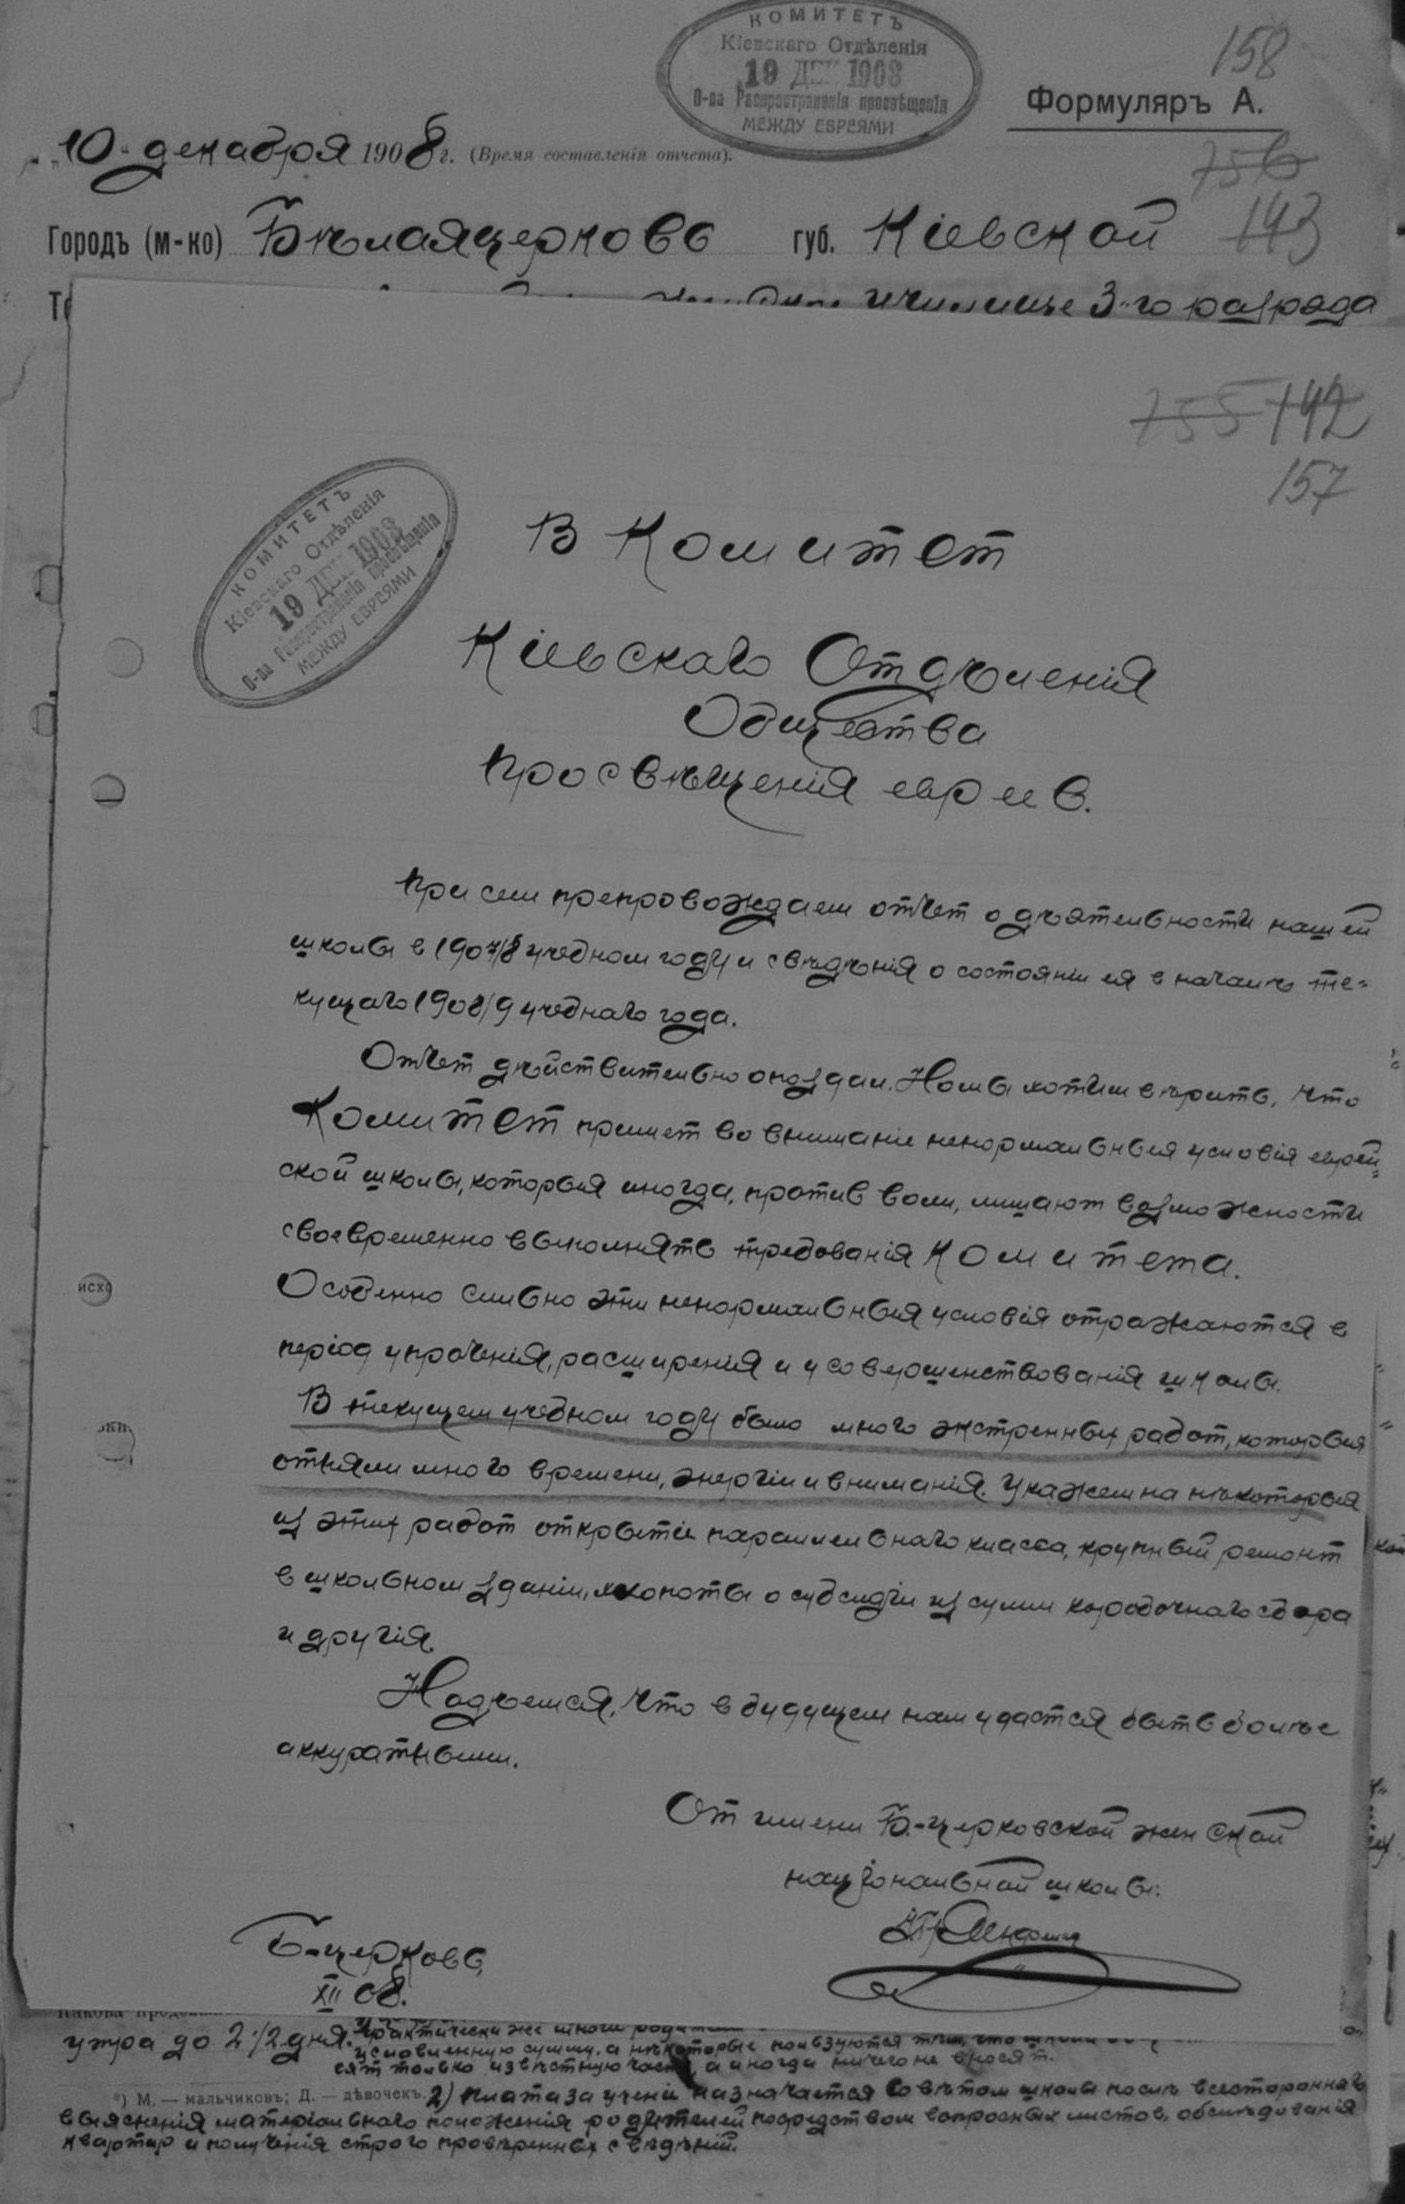 КОМИТЕТЪ
Кіевскаго Отдѣленія
19 ДЕК 1908
О-ва Распространенія просвѣщенія
МЕЖДУ ЕВРЕЯМИ
158
Формуляръ А.
10 декабря 1908 г. (Время составленія отчета).
756
143
Городъ (м-ко) Бѣлаяцерковь губ. Кіевской
училище 3-го разряда
755 142
157
КОМИТЕТЪ
Кіевскаго Отдѣленія
19 ДЕК 1908
О-ва Распространенія просвѣщенія
МЕЖДУ ЕВРЕЯМИ
В Комитет
Кіевскаго Отдѣленія
Общества
просвѣщенія евреев.
При сем препровождаем отчет о дѣятельности нашей
школы в 1907/8 учебном году и свѣдѣнія о состояніи ея в началѣ те-
кущаго 1908/9 учебнаго года.
Отчет дѣйствительно опоздал. Но мы хотим вѣрить, что
Комитет примет во вниманіе ненормальныя условія еврей-
ской школы, которыя иногда, против воли, лишают возможности
своевременно выполнять требованія Комитета.
Особенно сильно эти ненормальныя условія отражаются в
період упроченія, расширенія и усовершенствованія школы.
В текущем учебном году было много экстренных работ, которыя
отняли много времени, энергіи и вниманія. Укажем на нѣкоторыя
из этих работ открытіе параллельнаго класса, крупный ремонт
в школьном зданіи, хлопоты о субсидіи из сумм коробочнаго сбора
и другія.
Надѣемся, что в будущем нам удастся быть болѣе
аккуратными.
От имени Б.-церковской женской
національной школы:
Б-церковь,
XII 08.
исхо
утра до 2 1/2 дня. Практически же многіе
условленную сумму, а нѣкоторые пользуются тѣм, что
сят только извѣстную часть, а иногда ничего не вносят.
*) М. — мальчиковъ; Д. — дѣвочекъ. 2) Плата за ученіе назначается Совѣтом школы послѣ всесторонняго
выясненія матеріальнаго положенія родителей посредством вопросных листов, обслѣдованія
квартир и полученія строго провѣренных свѣдѣній.